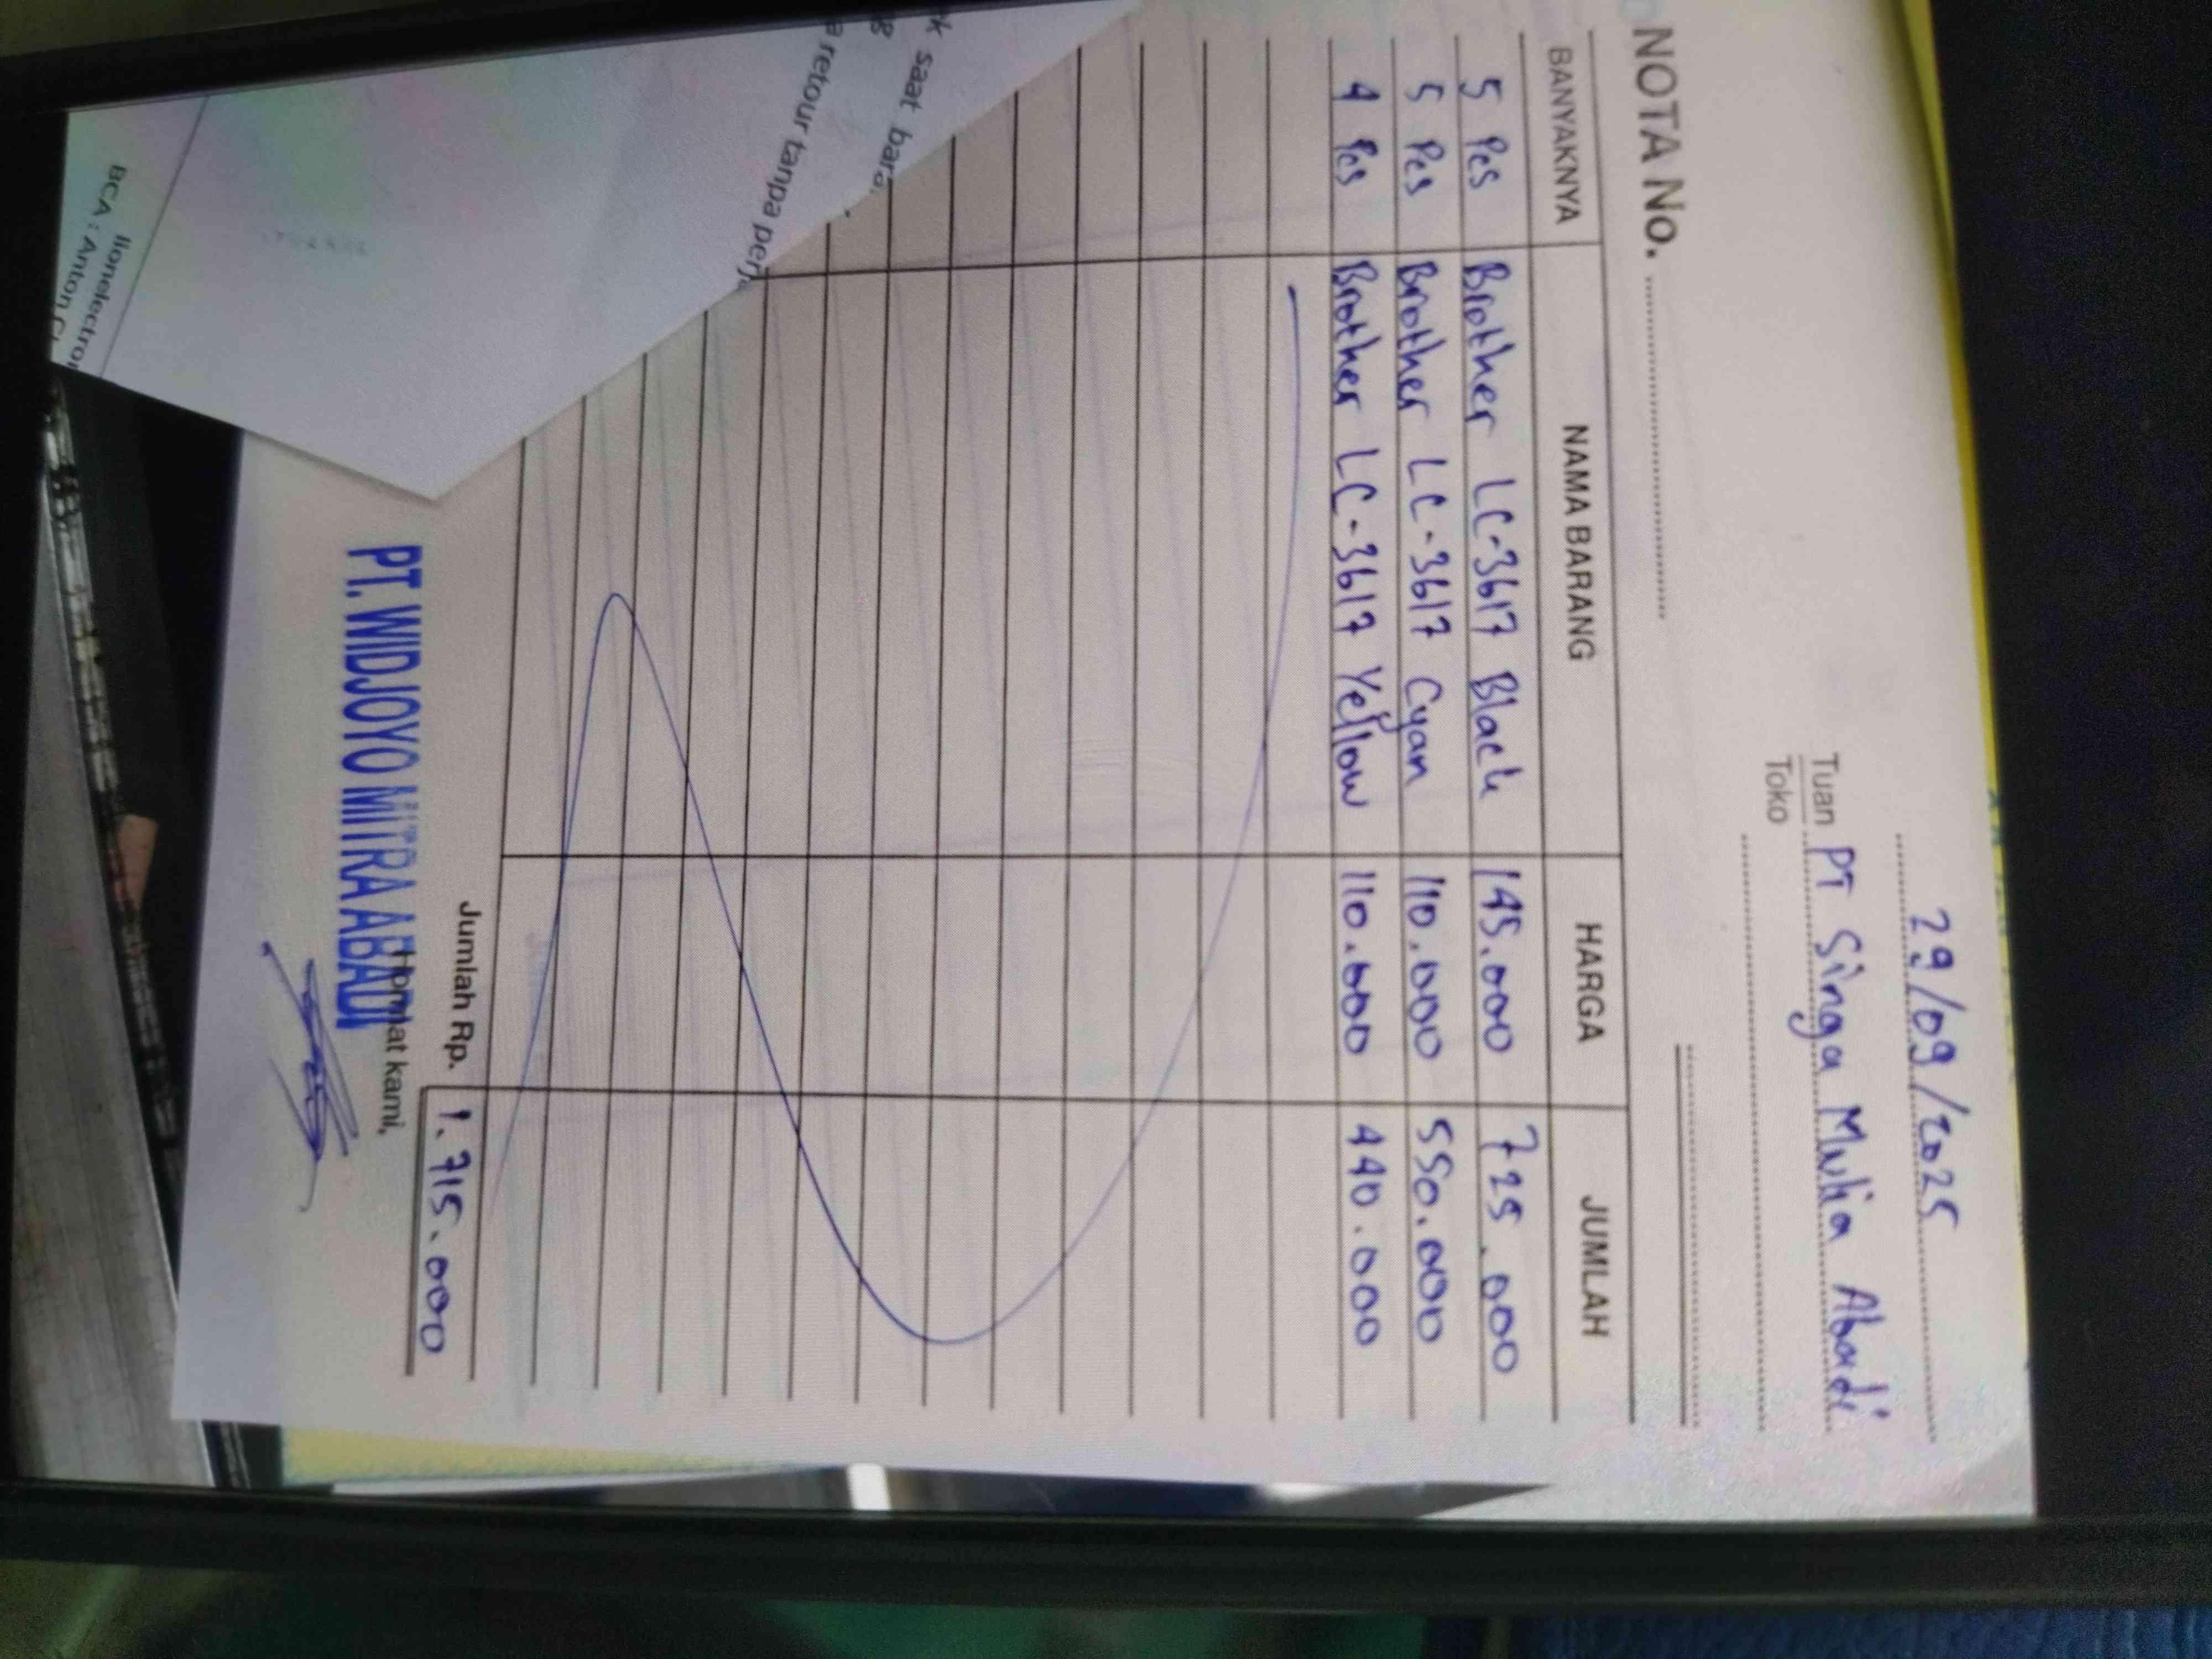 29/09/2025
Tuan PT Singa Mulia Abadi
Toko
NOTA No.
BANYAKNYA NAMA BARANG HARGA JUMLAH
5 Pcs Brother LC-3617 Black 145.000 725.000
5 Pcs Brother LC-3617 Cyan 110.000 550.000
4 Pcs Brother LC-3617 Yellow 110.000 440.000
Jumlah Rp. 1.715.000
Hormat kami,
PT. WIDJOYO MITRA ABADI
saat
retour tanpa
BCA : Anton